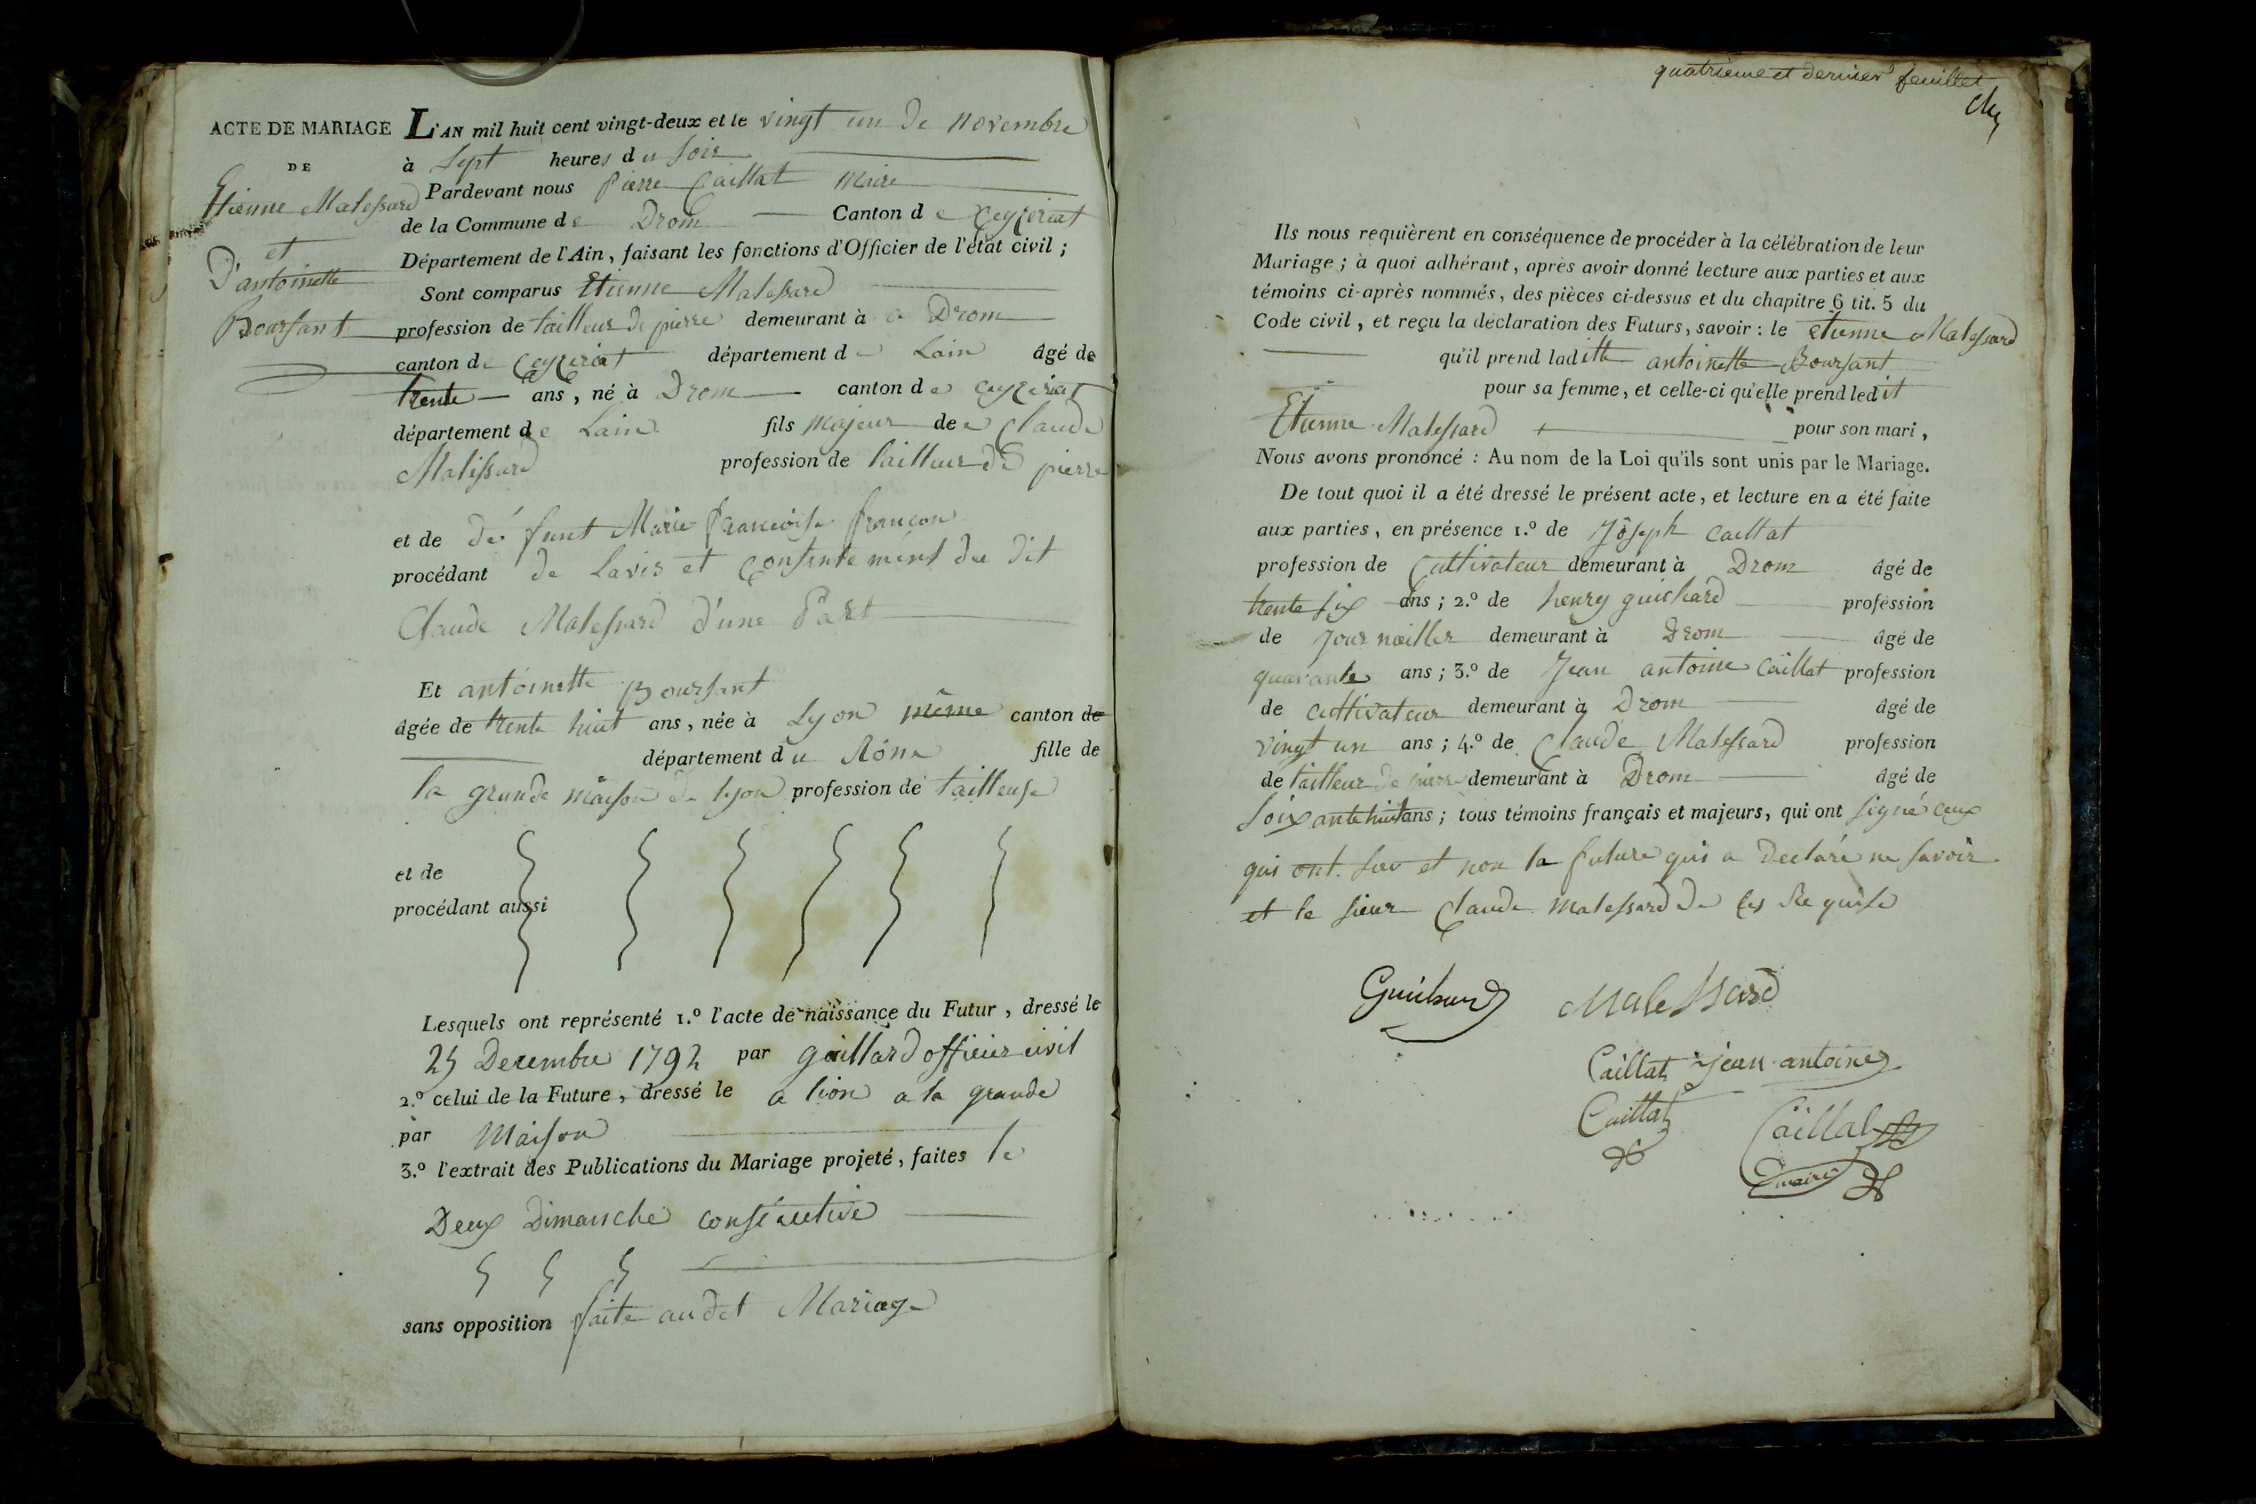 ACTE DE MARIAGE
DE
Etienne Malessard
et
D'antoinette
Boursant
L'AN mil huit cent vingt-deux et le vingt un de novembre
à Sept heures du soir
Pardevant nous pierre Caillat Maire
de la Commune de Drom Canton de Ceyzeriat
Département de l'Ain, faisant les fonctions d'Officier de l'état civil ;
Sont comparus Etienne Malessard
profession de tailleur de pierre demeurant à a Drom
canton de Ceyzeriat département de Lain âgé de
trente ans, né à Drom canton de ceyzeriat
département de Lain fils majeur de Claude
Malissard profession de tailleur de pierre
et de défunt Marie francoise françon
procédant de Lavis et Consentement du dit
Claude Malessard d'une Part
Et antoinette Boursant
âgée de trente huit ans, née à Lyon même canton de
département du Rône fille de
la grande maison de lyon profession de tailleuse
et de
procédant aussi
Lesquels ont représenté 1.º l'acte de naissance du Futur, dressé le
25 Decembre 1792 par gaillard officier civil
2.º celui de la Future, dressé le a lion a la grande
par Maison
3.º l'extrait des Publications du Mariage projeté, faites le
Deux Dimanche consécutive
sans opposition faite audit Mariage
quatrieme et dernier feuillet
Ils nous requièrent en conséquence de procéder à la célébration de leur
Mariage ; à quoi adhérant, après avoir donné lecture aux parties et aux
témoins ci-après nommés, des pièces ci-dessus et du chapitre 6 tit. 5 du
Code civil, et reçu la déclaration des Futurs, savoir : le etienne Malessard
qu'il prend laditte antoinette Boursant
pour sa femme, et celle-ci qu'elle prend ledit
Etienne Malessard pour son mari,
Nous avons prononcé : Au nom de la Loi qu'ils sont unis par le Mariage.
De tout quoi il a été dressé le présent acte, et lecture en a été faite
aux parties, en présence 1.º de Joseph Caillat
profession de Cultivateur demeurant à Drom âgé de
trente six ans ; 2.º de henry guichard profession
de Journaillier demeurant à Drom âgé de
quarante ans ; 3.º de Jean antoine Caillat profession
de cultivateur demeurant à Drom âgé de
vingt un ans ; 4.º de Claude Malessard profession
de tailleur de pierre demeurant à Drom âgé de
Soixante huit ans ; tous témoins français et majeurs, qui ont signé ceux
qui ont su et non la future qui a declaré ne savoir
et le sieur Claude malessard de ces Requise
Guichard Malessard
Caillat jean antoine
Caillat Caillat
maire